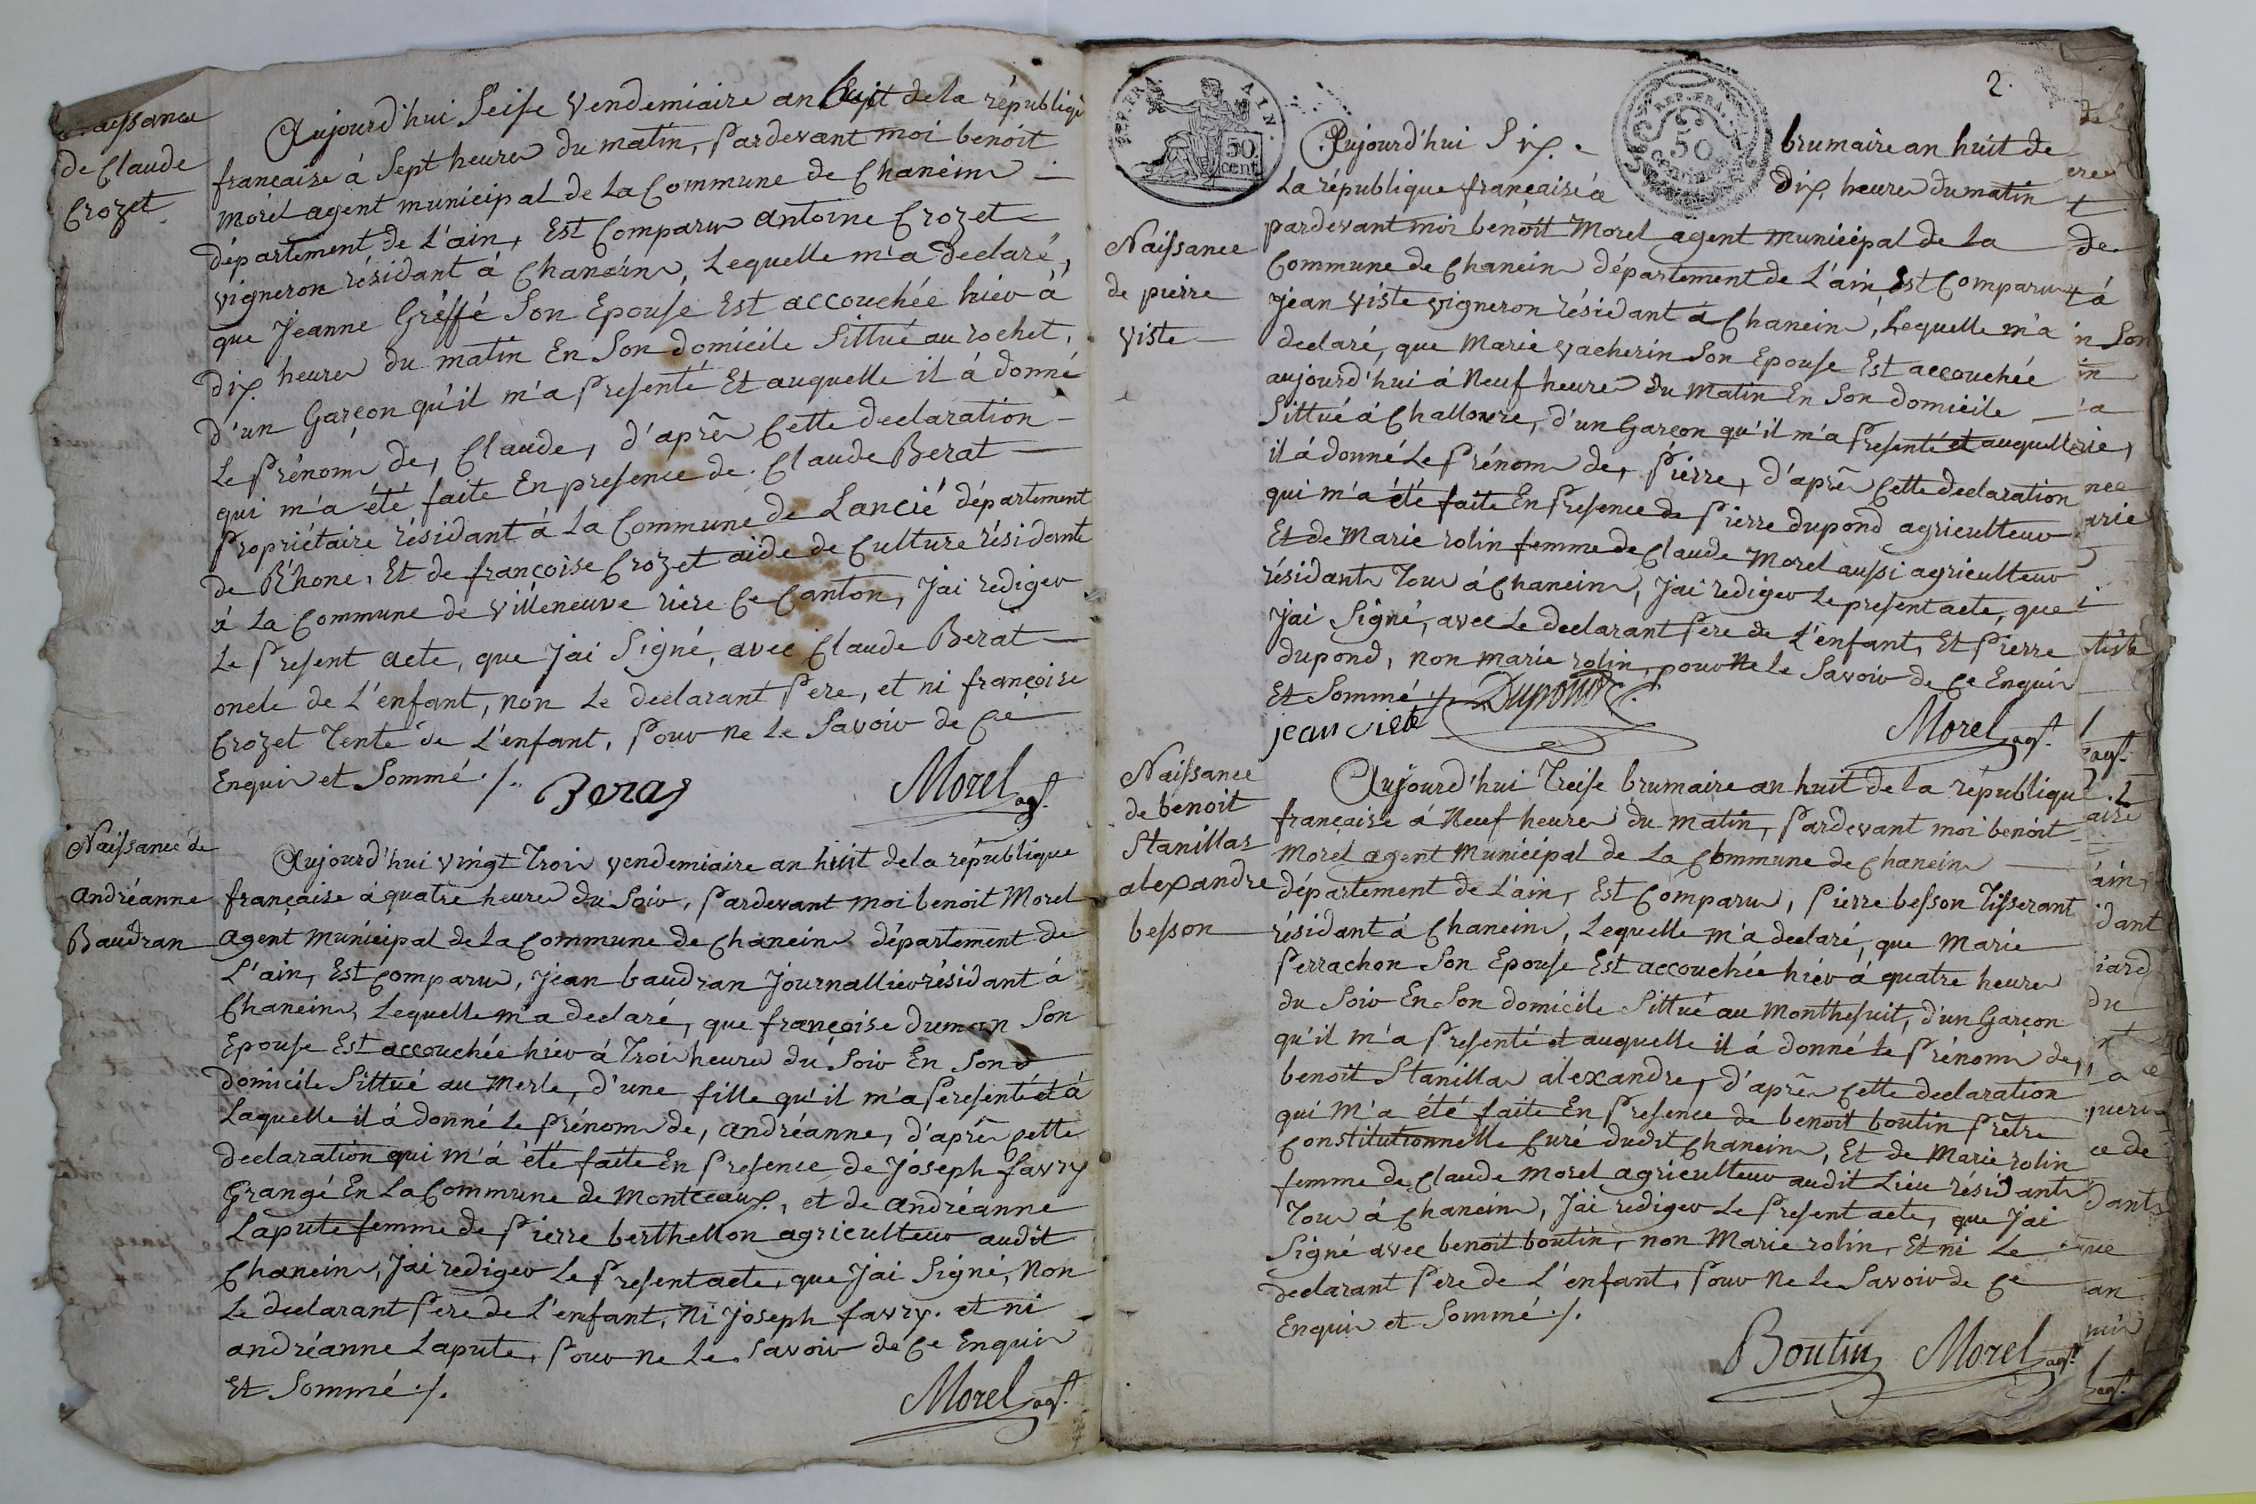 Naissance
de Claude
Crozet
Aujourd'hui Seise vendemiaire an huit de la républiq
francaise à Sept heures du matin, pardevant moi benoit
Morel agent municipal de la Commune de Chaneins
département de L'ain, Est Comparu antoine Crozet
vigneron résidant à Chaneins, Lequelle m'a declaré,
que Jeanne Greffé Son Epouse Est accouchée hier à
dix heures du matin En Son domicile Sittué au rochet,
d'un Garçon qu'il m'a presenté Et auquelle il à donné
Le prénom de, Claude, d'après Cette declaration
qui m'a été faite En presence de Claude Berat
propriétaire résidant à la Commune de Lancié département
de Rhone, Et de françoise Crozet aide de Culture résidante
à la Commune de villeneuve riere Ce Canton, J'ai rediger
Le present acte, que J'ai Signé, avec Claude Berat
oncle de L'enfant, non Le declarant pere, et ni françoise
Crozet Tente de L'enfant, pour ne le Savoir de Ce
Enquis et Sommé ./.
Beras
Morel agt.
Naissance de
andréanne
Baudran
Aujourd'hui vingt Trois vendemiaire an huit de la république
française à quatre heures du Soir, pardevant moi benoit Morel
agent municipal de la Commune de Chaneins département de
L'ain, Est Comparu, Jean baudran Journallier résidant à
Chaneins, Lequelle m'a declaré, que françoise duman Son
Epouse Est accouchée hier à Trois heures du Soir En Son
domicile Sittué au Merle, d'une fille qu'il m'a presenté et à
Laquelle il à donné Le prénom de, andréanne, d'après Cette
declaration qui m'à été faite En presence de Joseph favry
Grangé En La Commune de Montceaux, et de andréanne
Lapute femme de pierre berthellon agriculteur audit
Chaneins, J'ai rediger Le present acte, que J'ai Signé, Non
Le declarant pere de L'enfant, Ni Joseph favry. et ni
andréanne Lapute, pour ne Le Savoir de Ce Enquis
Et Sommé ./.
Morel agt.
REP. FRA.
AIN.
50
cent
REP. FRA.
50
2.
Aujourd'hui Six brumaire an huit de
La république française à dix heures du matin
pardevant moi benoit Morel agent municipal de La
Commune de Chaneins département de L'ain, Est Comparu
Jean viste vigneron résidant à Chaneins, Lequelle m'a
declaré, que Marie vacherin Son Epouse Est accouchée
aujourd'hui à Neuf heures du Matin En Son domicile
Sittué à Challoure, d'un Garçon qu'il m'a presenté et auquelle
il à donné Le prénom de, pierre, d'après Cette declaration
qui m'a été faite En presence de pierre dupond agriculteur
Et de Marie rolin femme de Claude Morel aussi agriculteur
résidants Tous à Chaneins, J'ai rediger Le present acte, que
J'ai Signé, avec Le declarant pere de L'enfant, Et pierre
dupond, non marie rolin, pour Ne le Savoir de Ce Enquis
Et Sommé ./.
Naissance
de pierre
viste
jean viste
Dupond
Morel agt.
Naissance
de benoit
Stanillas
alexandre
besson
Aujourd'hui Treise brumaire an huit de la république
française à Neuf heures du matin, pardevant moi benoit
Morel agent Municipal de La Commune de Chaneins
département de L'ain, Est Comparu, pierre besson Tisserant
résidant à Chaneins, Lequelle m'a declaré, que Marie
perrachon Son Epouse Est accouchée hier à quatre heures
du Soir En Son domicile Sittué au Monthesuit, d'un Garçon
qu'il m'a presenté et auquelle il à donné le prénom de,
benoit Stanillas alexandre, d'après Cette declaration
qui M'a été faite En presence de benoit boutin prêtre
Constitutionnelle Curé dudit Chaneins, Et de Marie rolin
femme de Claude Morel agriculteur audit Lieu résidants
Tous à Chaneins, J'ai rediger Le present acte, que J'ai
Signé avec benoit boutin, non Marie rolin, Et ni Le
declarant pere de L'enfant, pour Ne Le Savoir de Ce
Enquis et Sommé ./.
Boutin
Morel agt.